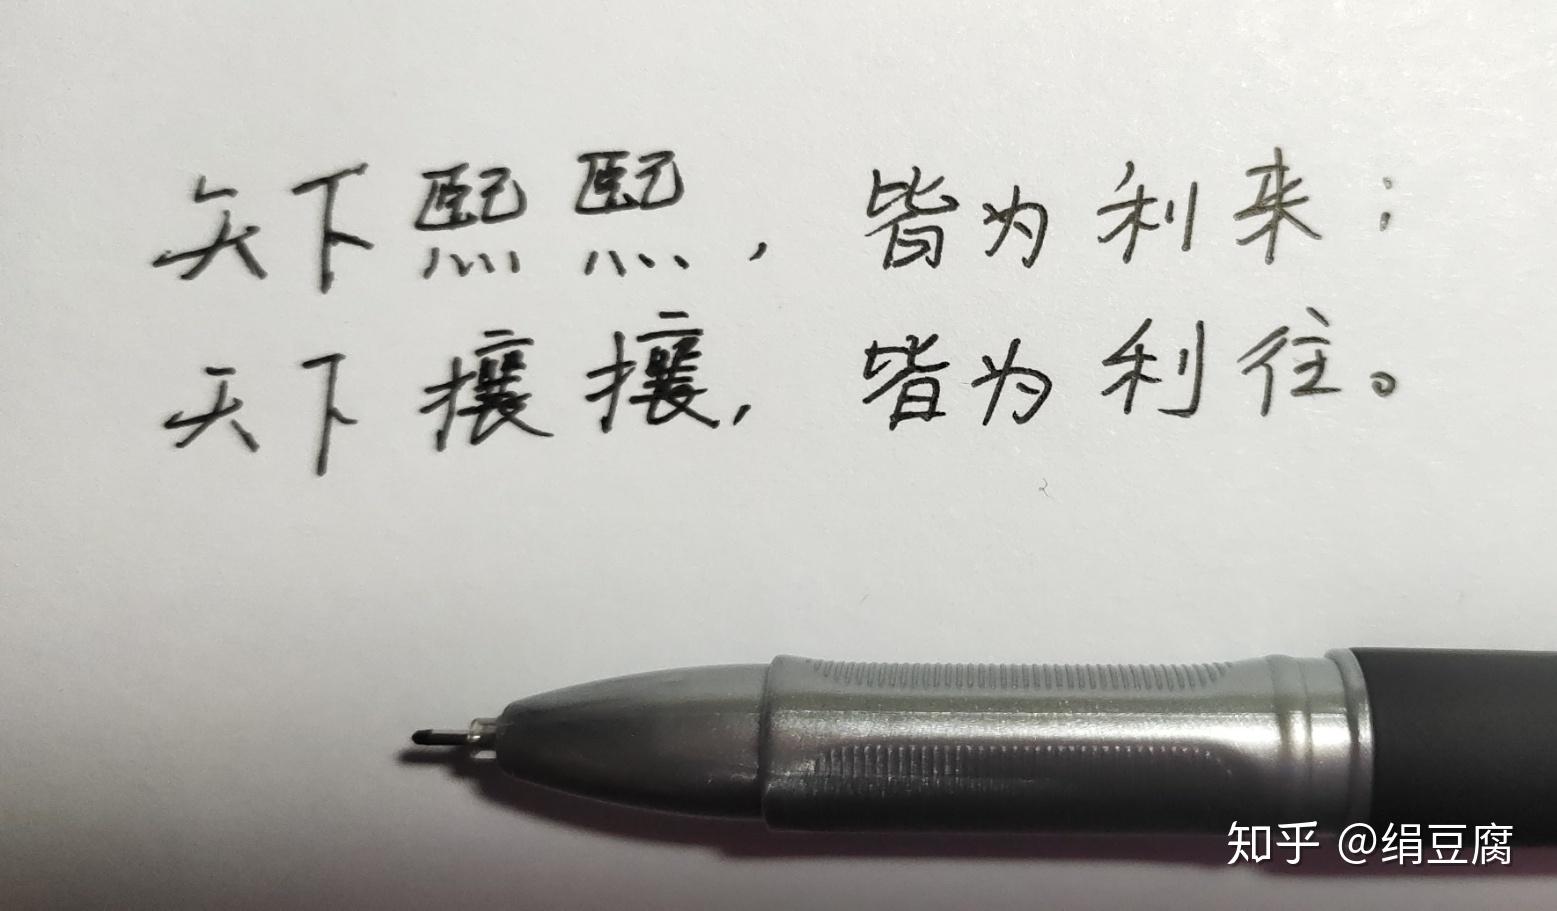 天下熙熙，皆为利来；
天下攘攘，皆为利往。
知乎 @绢豆腐